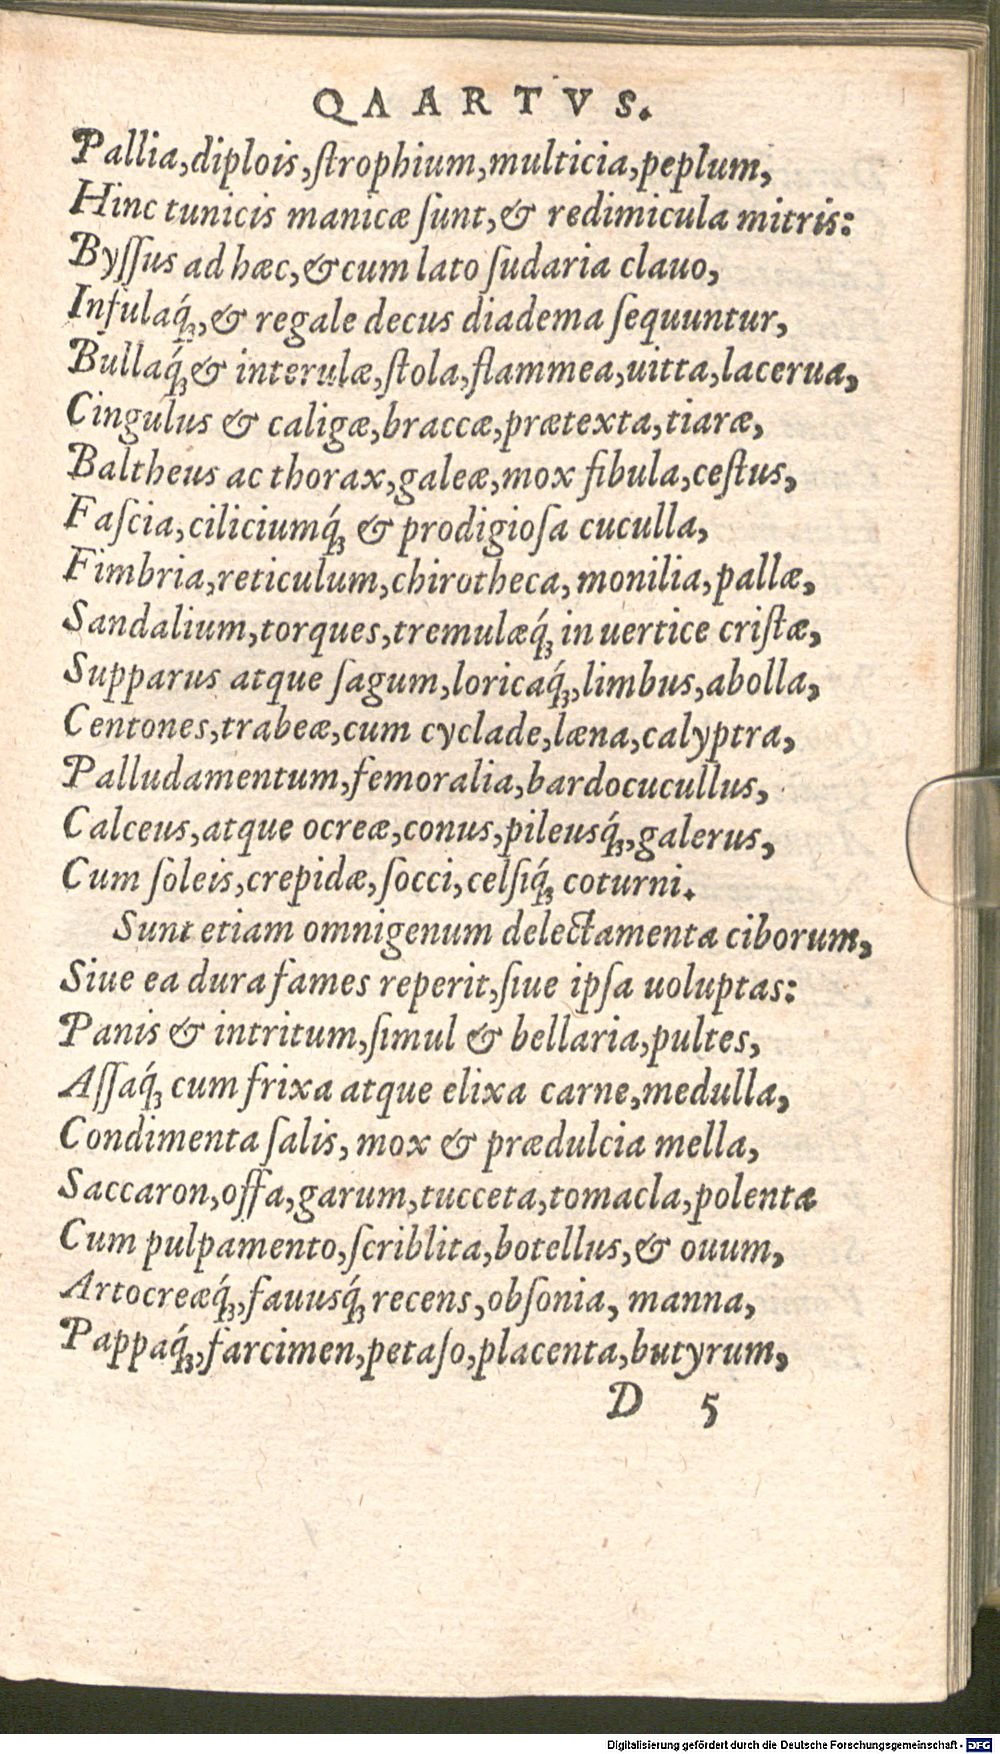 QAARTVS.
Pallia,diplois,ſtrophium,multicia,peplum,
Hinc tunicis manicæ ſunt,& redimicula mitris:
Byſſus ad hæc,&cum lato ſudaria clauo,
Infulaq́ꝫ,& regale decus diadema ſequuntur,
Bullaq́ꝫ& interulæ,ſtola,flammea,uitta,lacerua,
Cingulus & caligæ,braccæ,prætexta,tiaræ,
Baltheus ac thorax,galeæ,mox fibula,ceſtus,
Faſcia,ciliciumq́ꝫ & prodigioſa cuculla,
Fimbria,reticulum,chirotheca, monilia,pallæ,
Sandalium,torques,tremulæq́ꝫ in uertice criſtæ,
Supparus atque ſagum,loricaq́ꝫ,limbus,abolla,
Centones,trabeæ,cum cyclade,læna,calyptra,
Palludamentum,femoralia,bardocucullus,
Calceus,atque ocreæ,conus,pileusq́ꝫ,galerus,
Cum ſoleis,crepidæ,ſocci,celſiq́ꝫ coturni.
Sunt etiam omnigenum delectamenta ciborum,
Siue ea dura fames reperit,ſiue ipſa uoluptas:
Panis & intritum,ſimul & bellaria,pultes,
Aſſaq́ꝫ cum frixa atque elixa carne,medulla,
Condimenta ſalis, mox & prædulcia mella,
Saccaron,offa,garum,tucceta,tomacla,polenta
Cum pulpamento,ſcriblita,botellus,& ouum,
Artocreæq́ꝫ,fauusq́ꝫ recens,obſonia, manna,
Pappaq́ꝫ,farcimen,petaſo,placenta,butyrum,
D 5
Digitalisierung gefördert durch die Deutsche Forschungsgemeinschaft - DFG